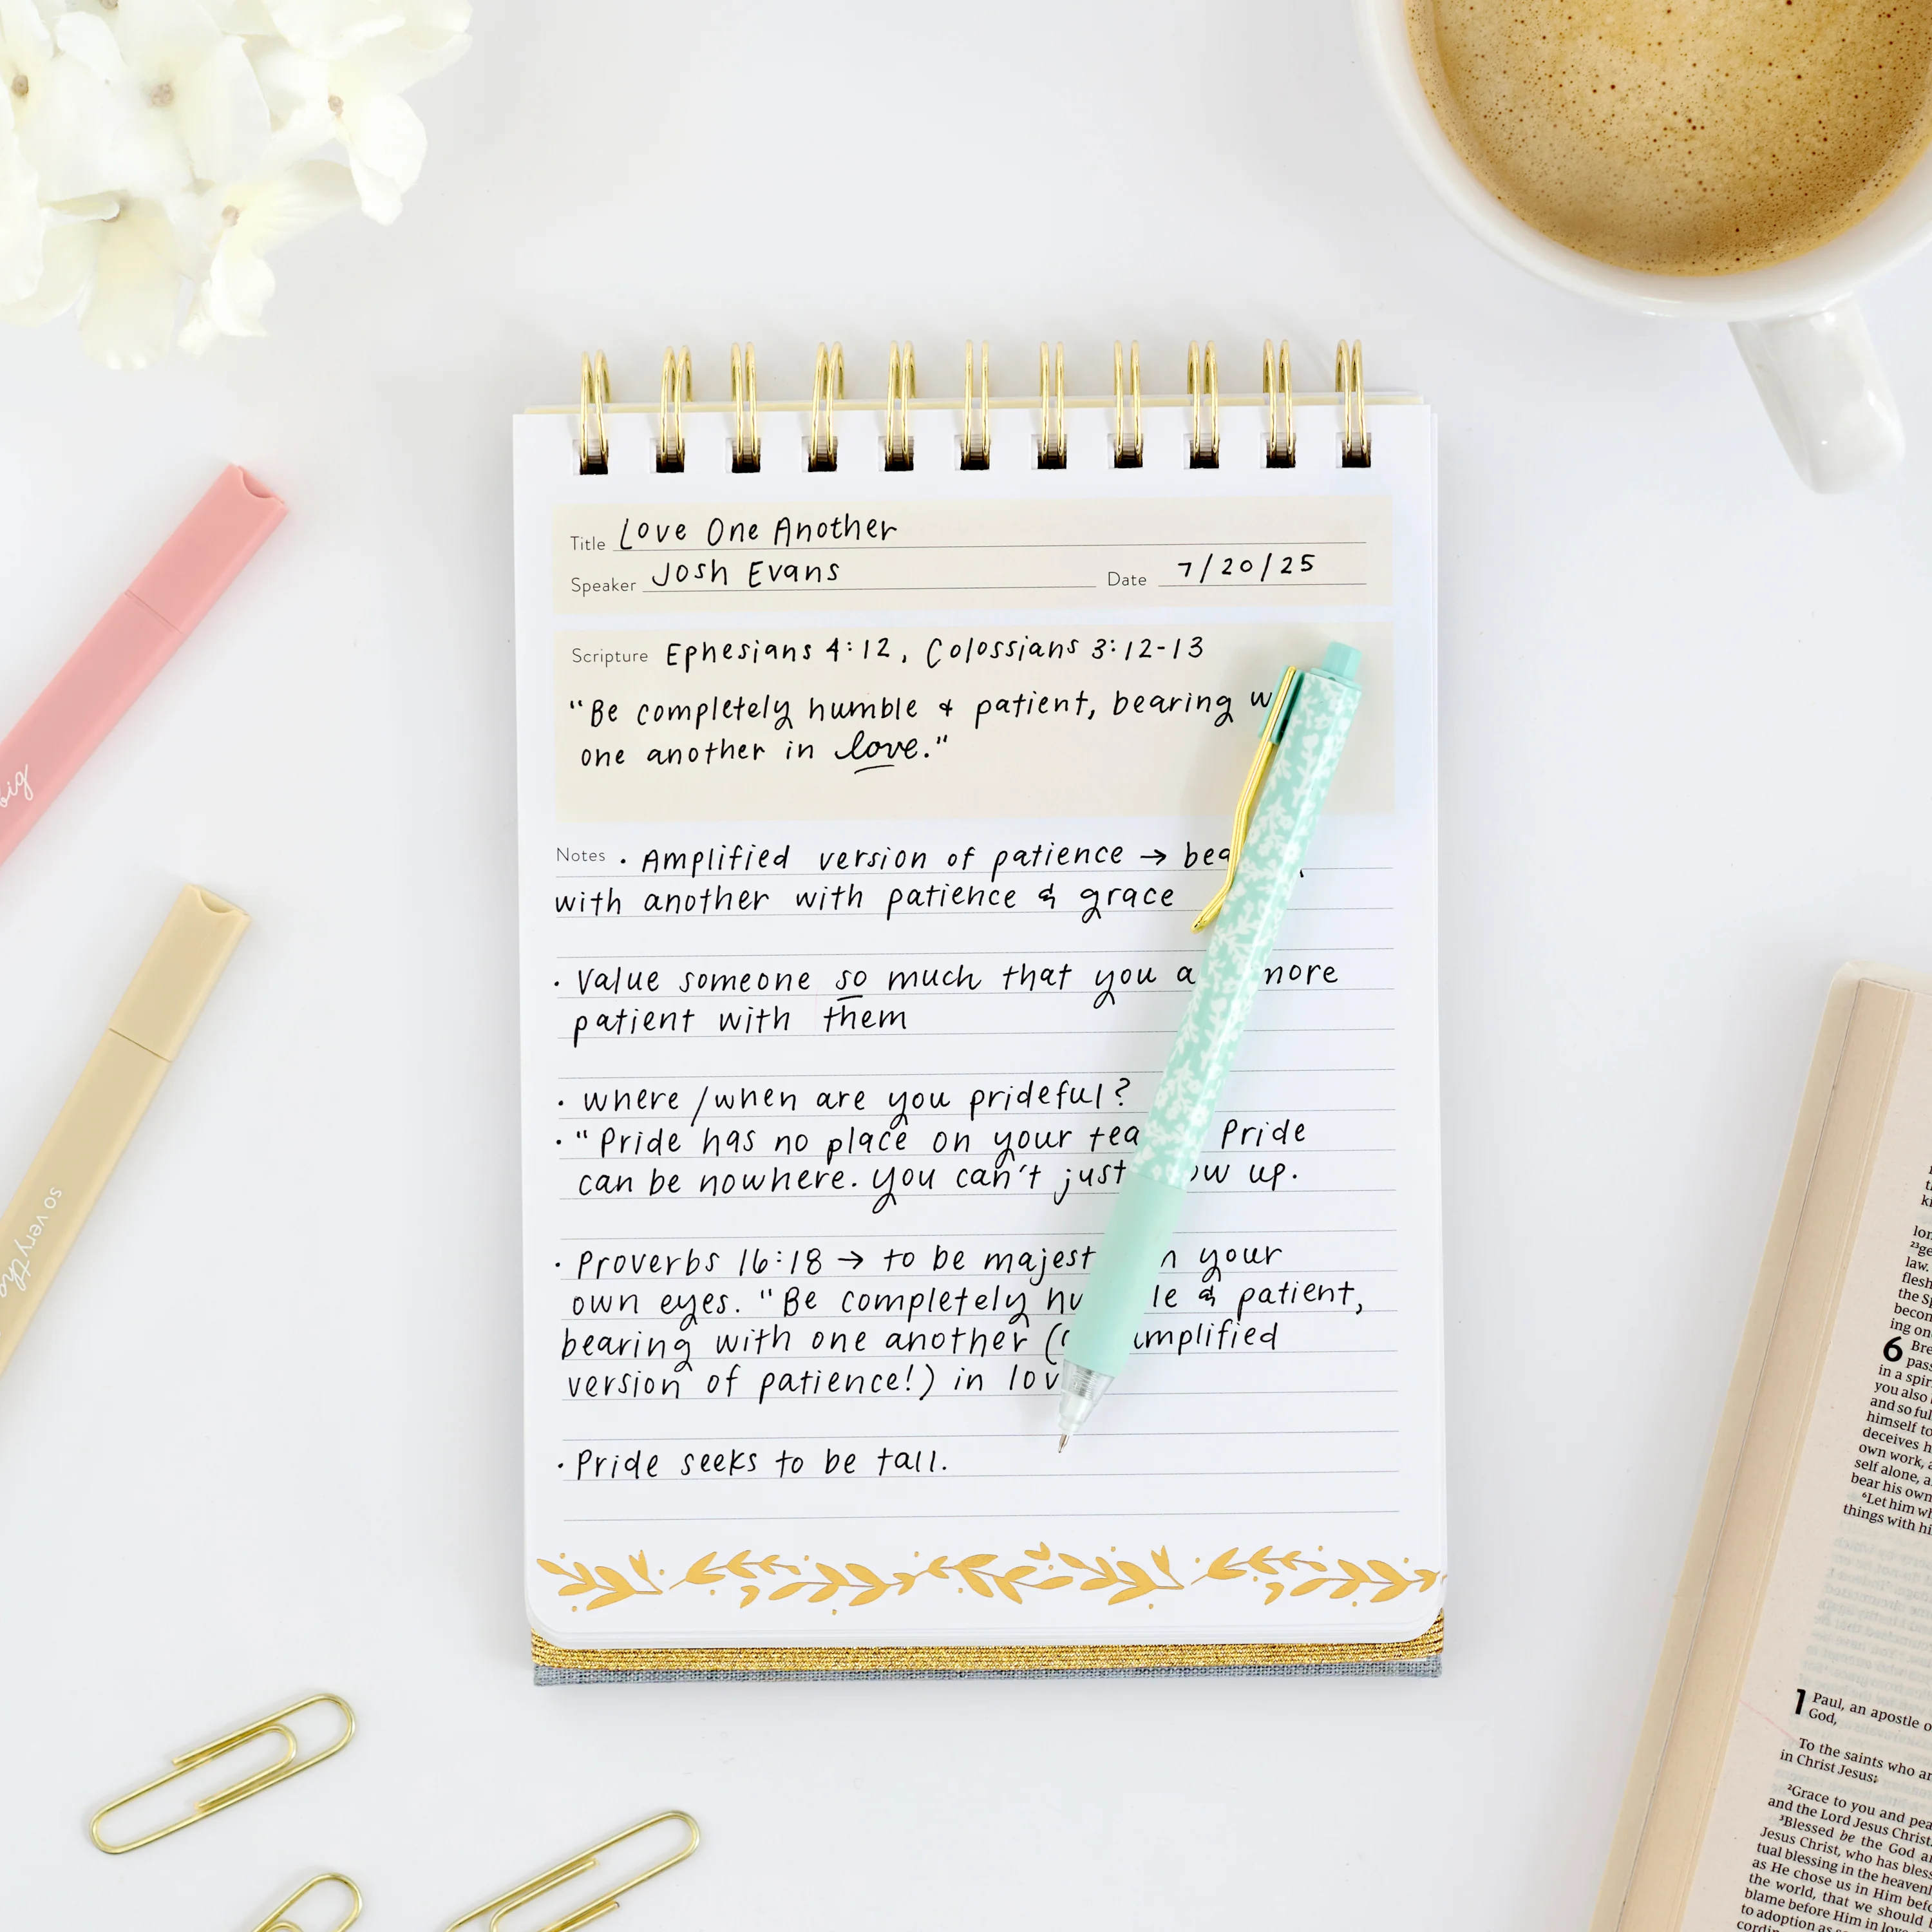 Title Love One Another
Speaker Josh Evans Date 7/20/25
Scripture Ephesians 4:12, Colossians 3:12-13
"Be completely humble & patient, bearing
one another in love."
Notes • Amplified version of patience →
with another with patience & grace
• Value someone so much that you more
patient with them
• where/when are you prideful?
• "Pride has no place on your Pride
can be nowhere. you can't just up.
• Proverbs 16:18 → to be your
own eyes. "Be completely & patient,
bearing with one another
version of patience!) in
• Pride seeks to be tall.
big
so very
lon
23ge
law.
flesh
the
becom
ing on
6 Bre
pass
in a spir
you also
and so ful
himself to
deceives h
own work, a
self alone, a
bear his own
6Let him wh
things with hi
1 Paul, an apostle o
God,
To the saints who ar
in Christ Jesus:
2Grace to you and pea
and the Lord Jesus Christ.
3Blessed be the God a
Jesus Christ, who has bless
tual blessing in the heavenl
as He chose us in Him bef
the world, that we should
blame before Him in love
to adoption as
cordin